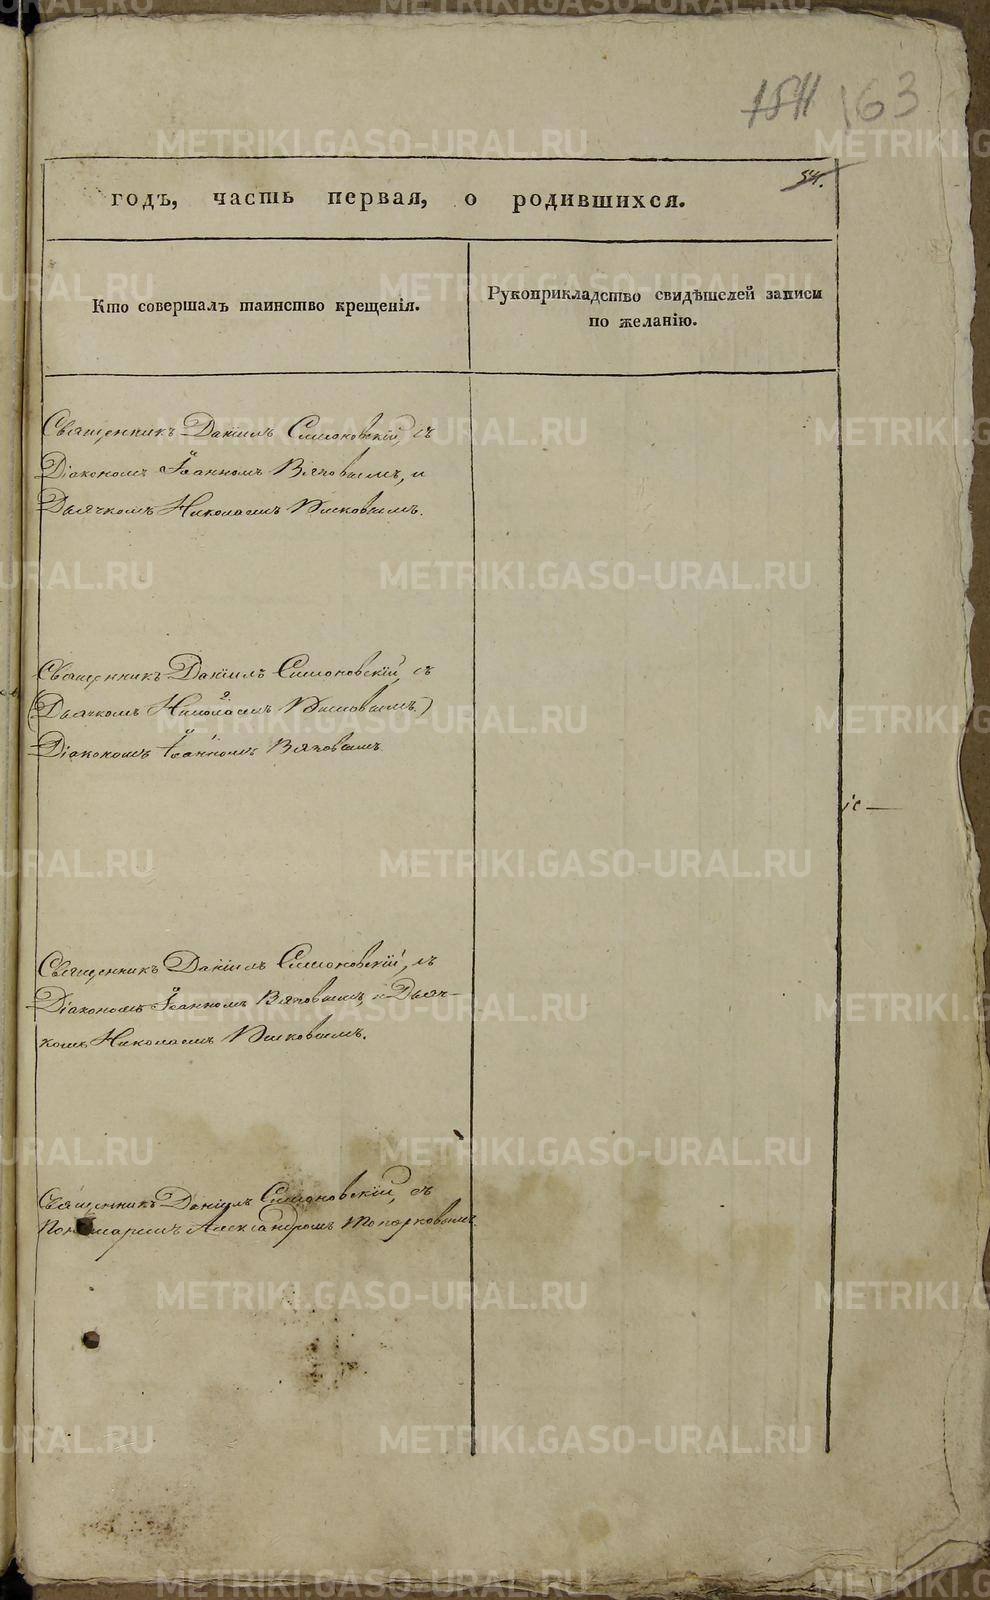 163
годъ, часть первая, о родившихся.
Кто совершалъ таинство крещенія.
Рукоприкладство свидѣтелей записи
по желанію.
Священникъ Даніилъ Симоновскій, съ
Діакономъ Іоанномъ Вяховымъ, и
Дьячкомъ Николаемъ
Священникъ Даніилъ Симоновскій, съ
(Дьячкомъ Николаемъ
Діакономъ Іоанномъ Вяховымъ
Священникъ Даніилъ Симоновскій, съ
Діакономъ Іоанномъ Вяховымъ, и Дьяч-
комъ Николаемъ
Священникъ Даніилъ Симоновскій, съ
Пономаремъ Александромъ Топорковымъ.
METRIKI.GASO-URAL.RU